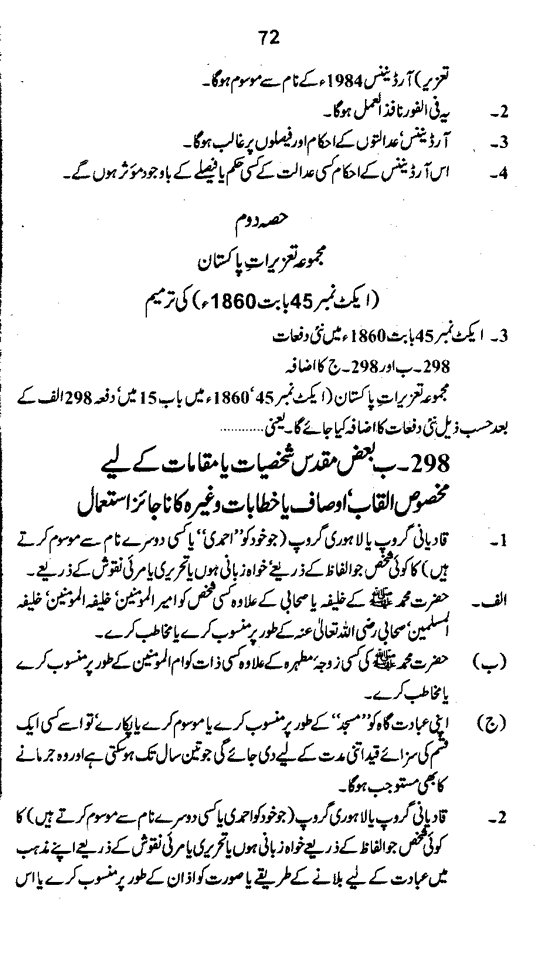 72
تعزیر) آرڈیننس 1984ء کے نام سے موسوم ہوگا۔
2۔ یہ فی الفور نافذ العمل ہوگا۔
3۔ آرڈیننس‘ عدالتوں کے احکام اور فیصلوں پر غالب ہوگا۔
4۔ اس آرڈیننس کے احکام کسی عدالت کے کسی حکم یا فیصلے کے باوجود مؤثر ہوں گے۔
حصہ دوم
مجموعہ تعزیراتِ پاکستان
(ایکٹ نمبر 45 بابت 1860ء) کی ترمیم
3۔ ایکٹ نمبر 45 بابت 1860ء میں نئی دفعات
298۔ب اور 298۔ج کا اضافہ
مجموعہ تعزیراتِ پاکستان (ایکٹ نمبر 45‘ 1860ء میں باب 15 میں‘ دفعہ 298 الف کے
بعد حسب ذیل نئی دفعات کا اضافہ کیا جائے گا۔ یعنی............
298۔ب بعض مقدس شخصیات یا مقامات کے لیے
مخصوص القاب‘ اوصاف یا خطابات وغیرہ کا ناجائز استعمال
1۔ قادیانی گروپ یا لاہوری گروپ (جو خود کو ’’احمدی‘‘ یا کسی دوسرے نام سے موسوم کرتے
ہیں) کا کوئی شخص جو الفاظ کے ذریعے‘ خواہ زبانی ہوں یا تحریری یا مرئی نقوش کے ذریعے۔
الف۔ حضرت محمد ﷺ کے خلیفہ یا صحابی کے علاوہ کسی شخص کو امیر المؤمنین‘ خلیفۃ المؤمنین‘ خلیفۃ
المسلمین‘ صحابی رضی اللہ تعالیٰ عنہ کے طور پر منسوب کرے یا مخاطب کرے۔
(ب) حضرت محمد ﷺ کی کسی زوجۂ مطہرہ کے علاوہ کسی ذات کو ام المومنین کے طور پر منسوب کرے
یا مخاطب کرے۔
(ج) اپنی عبادت گاہ کو ’’مسجد‘‘ کے طور پر منسوب کرے یا موسوم کرے یا پکارے‘ تو اسے کسی ایک
قسم کی سزائے قید اتنی مدت کے لیے دی جائے گی جو تین سال تک ہوسکتی ہے اور وہ جرمانے
کا بھی مستوجب ہوگا۔
2۔ قادیانی گروپ یا لاہوری گروپ (جو خود کو احمدی یا کسی دوسرے نام سے موسوم کرتے ہیں) کا
کوئی شخص جو الفاظ کے ذریعے خواہ زبانی ہوں یا تحریری یا مرئی نقوش کے ذریعے اپنے مذہب
میں عبادت کے لیے بلانے کے طریقے یا صورت کو اذان کے طور پر منسوب کرے یا اس